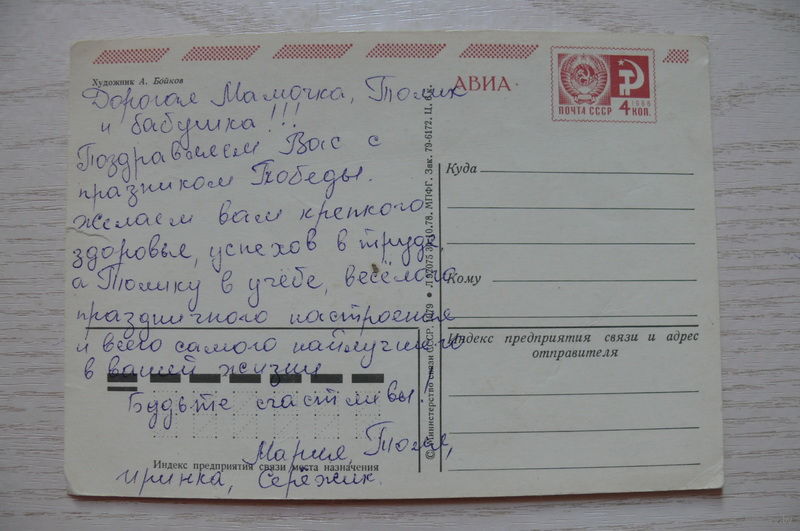 Художник А. Бойков
Дорогая Мамочка, Толик
и бабушка!!!
Поздравляем Вас с
празником Победы.
желаем вам крепкого
здоровья, успехов в труде,
а Толику в учёбе, весёлого
праздничного настроения
и всего самого наилучшего
в вашей жизни
Будьте счастливы.
Мария, Толя,
иринка, Сережик.
Индекс предприятия связи места назначения
© Министерство связи СССР, 1979 • Л 92075 30.10.78. МПФГ. Зак. 79-6172. Ц.
АВИА
ПОЧТА СССР
1966
4 КОП.
Куда
Кому
Индекс предприятия связи и адрес
отправителя